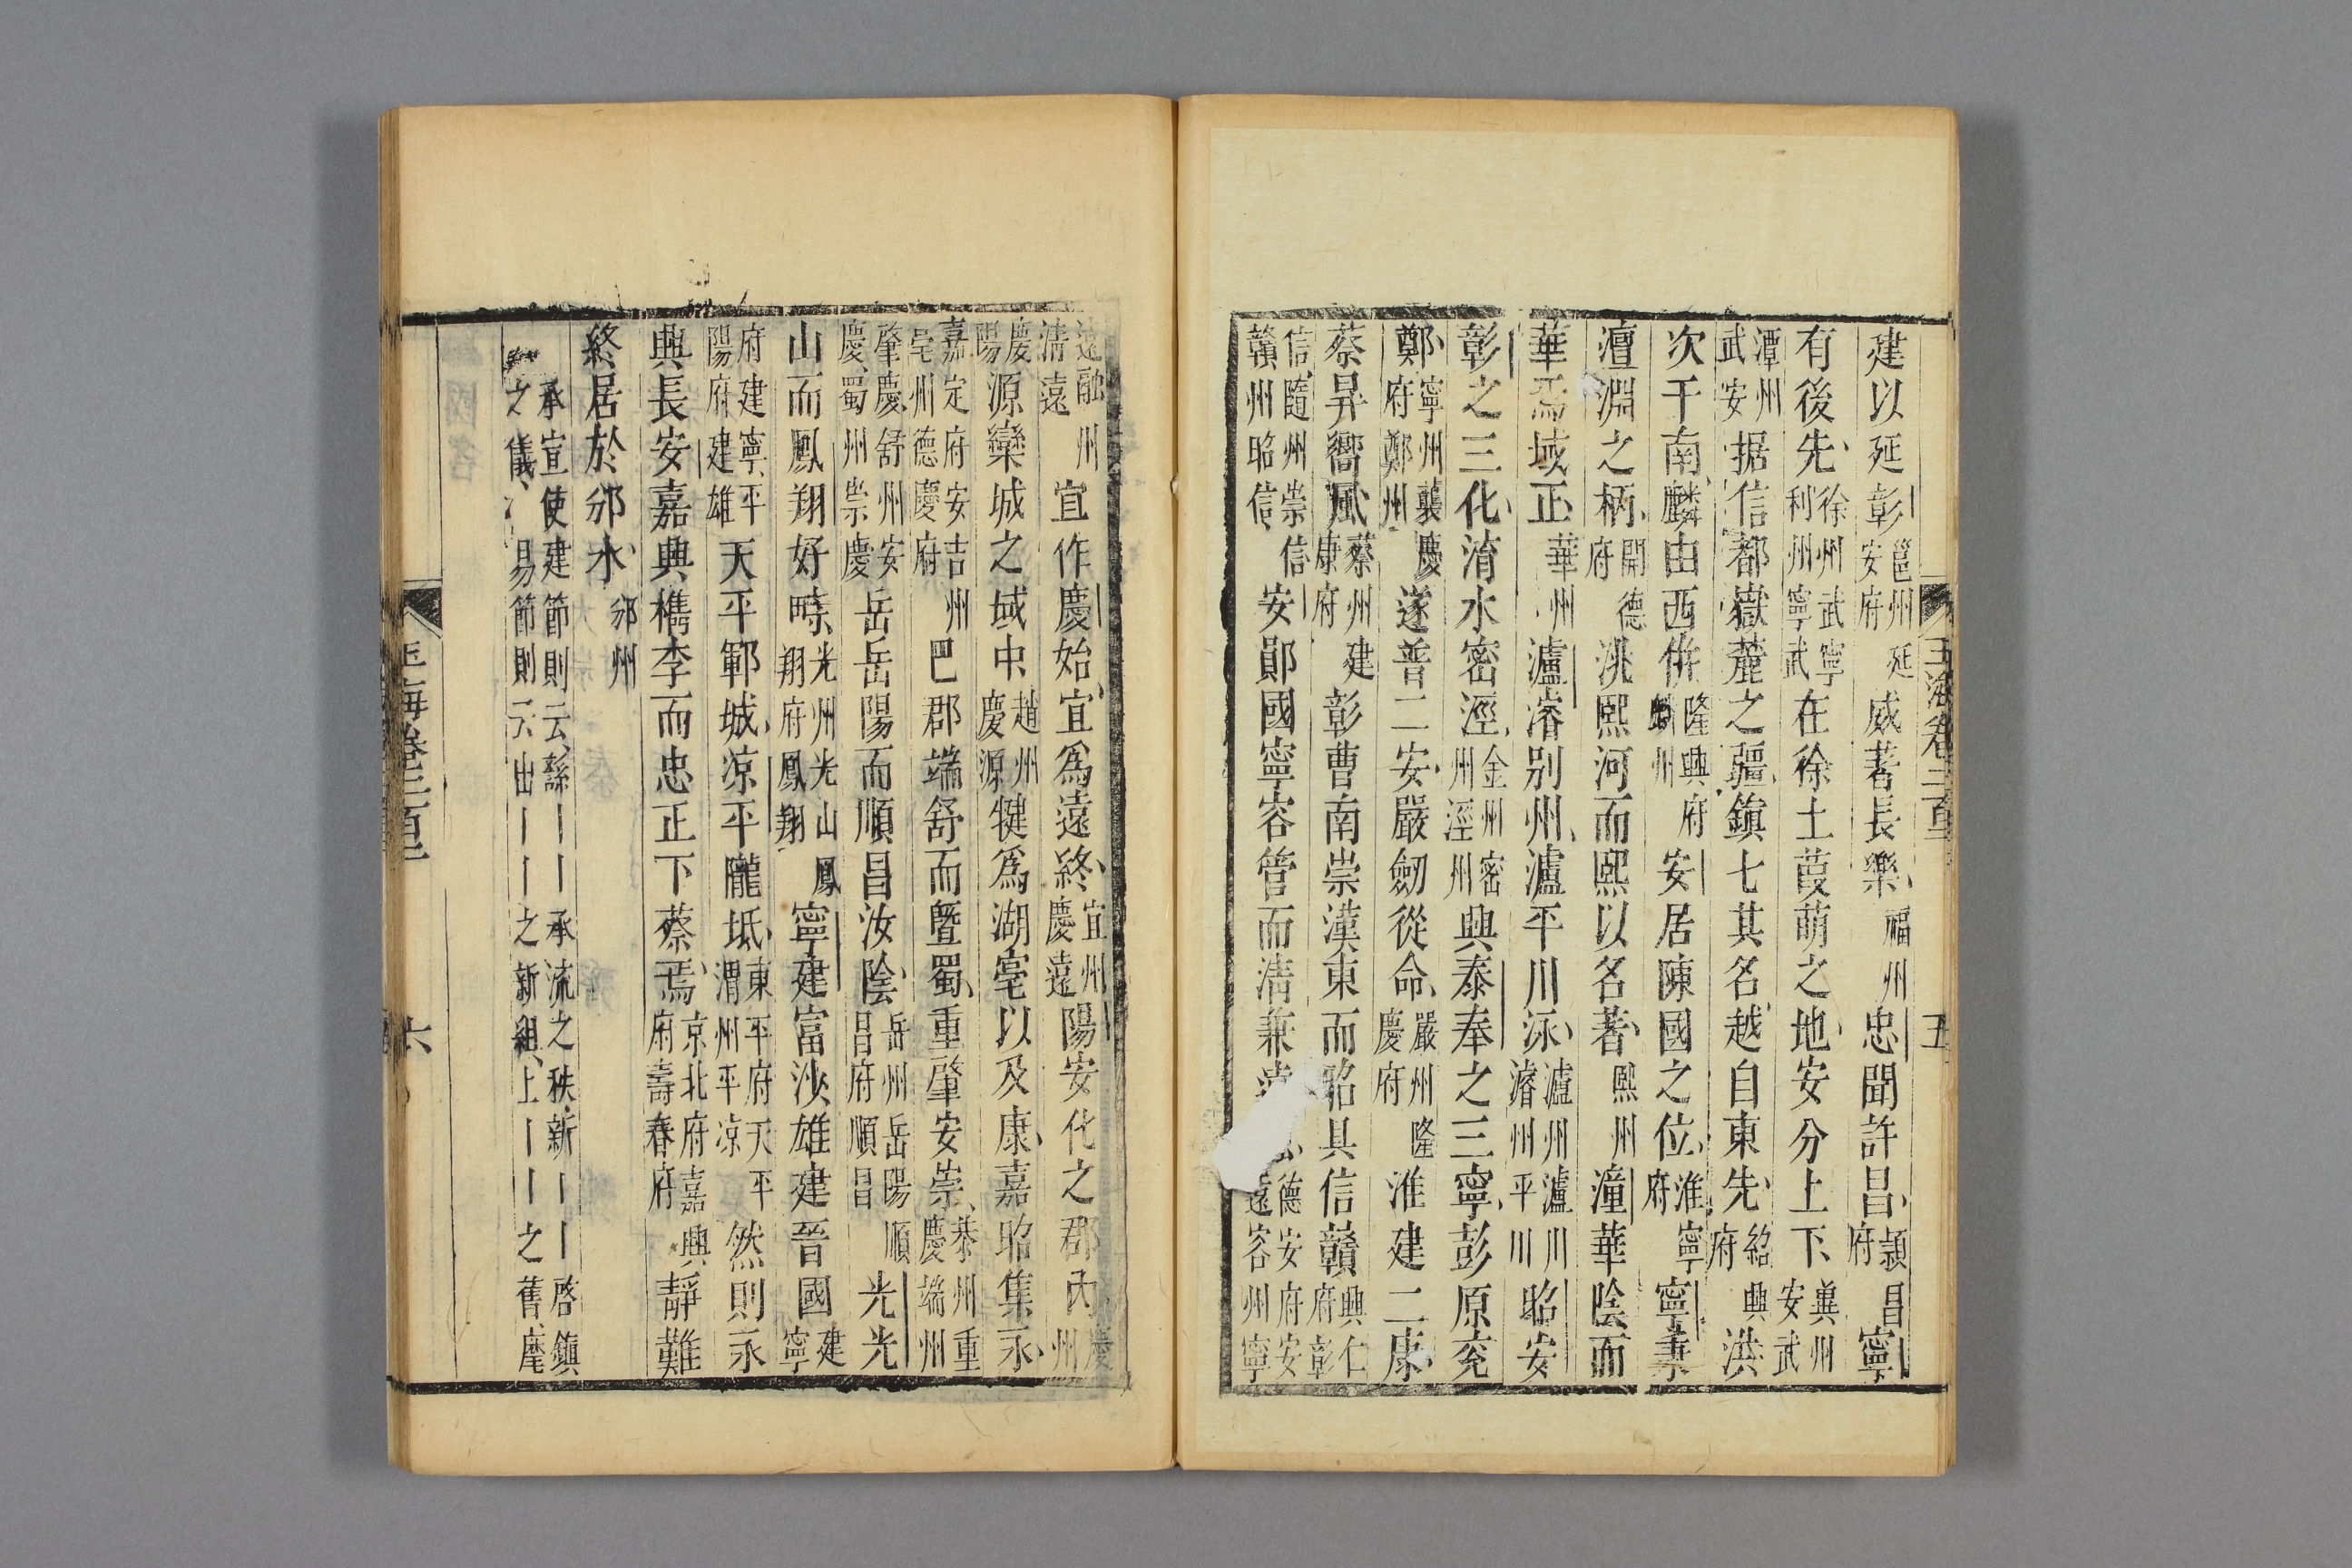 建以延彰邕州延安府威著長樂福州忠聞許昌潁昌府寧
有後先徐州武寧利州寧武在徐土葭萌之地安分上下冀州安武
潭州武安据信都嶽麓之疆鎮七其名越自東先紹興府洪
次于南麟由西併隆興府麟州安居陳國之位淮寧府寧秉
澶淵之柄開德府洮熙河而熙以名著熙州潼華陰而
華焉域正華州瀘濬別州瀘平川泳瀘州瀘川濬州平川昭安
彰之三化淯水密涇金州密州涇州興泰奉之三寧彭原兗
鄭寧州襲慶府鄭州遂普二安嚴劒從命嚴州隆慶府淮建二康
蔡昇嚮風蔡州建康府彰曹南崇漢東而昭具信贛興仁府彰
信隨州崇信贛州昭信安鄖國寧容管而清兼遠德安府安遠容州寧
遠融州清遠宜作慶始宜爲遠終宜州慶遠陽安化之郡內慶州
慶陽源欒城之域中趙州慶源犍爲湖亳以及康嘉昭集永
嘉定府安吉州亳州德慶府巴郡端舒而曁蜀重肇安崇恭州重慶端州
肇慶舒州安慶蜀州崇慶岳岳陽而順昌汝陰岳州岳陽順昌府順昌光光
山而鳳翔好畤光州光山鳳翔府鳳翔寧建富沙雄建晉國建寧
府建寧平陽府建雄天平鄆城凉平隴坻東平府天平渭州平凉然則永
興長安嘉興檇李而忠正下蔡焉京兆府嘉興府壽春府靜難
終居於邠水邠州
承宣使建節則云繇丨丨承流之秩新丨丨啓鎮
之儀易節則云出丨丨之新組上丨丨之舊麾
玉海卷二百二
五
六